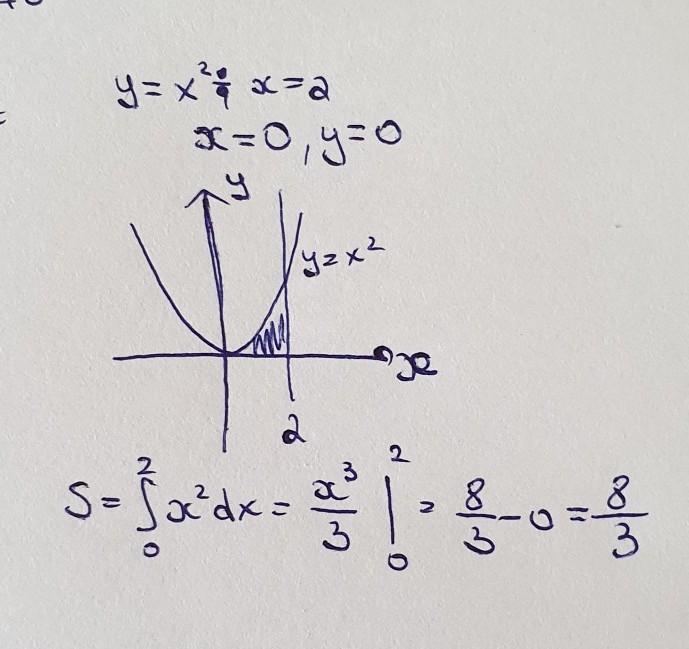 y = x²; x = 2
x = 0, y = 0
y
y = x²
x
2
S = ∫₀² x² dx = x³/3 |₀² = 8/3 - 0 = 8/3